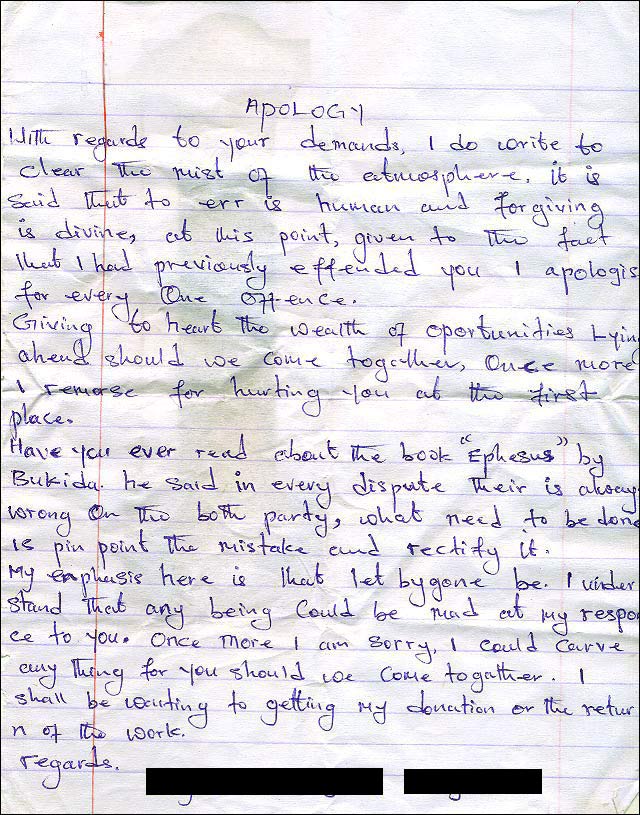 APOLOGY
With regards to your demands, I do write to
clear the mist of the atmosphere, it is
said that to err is human and forgiving
is divine, at this point, given to the fact
that I had previously effended you I apologis
for every One Offence.
Giving to heart the wealth of oportunities Lying
ahead should we come together, Once more
I remorse for hurting you at the first
place.
Have you ever read about the book "Ephesus" by
Bukida. he said in every dispute their is always
wrong On the both party, what need to be done
is pin point the mistake and rectify it.
My emphasis here is that let bygone be. I under
stand that any being Could be mad at my respon
ce to you. Once more I am sorry, I could Carve
any thing for you should we Come togather. I
shall be waiting to getting my donation or the retur
n of the work.
regards.